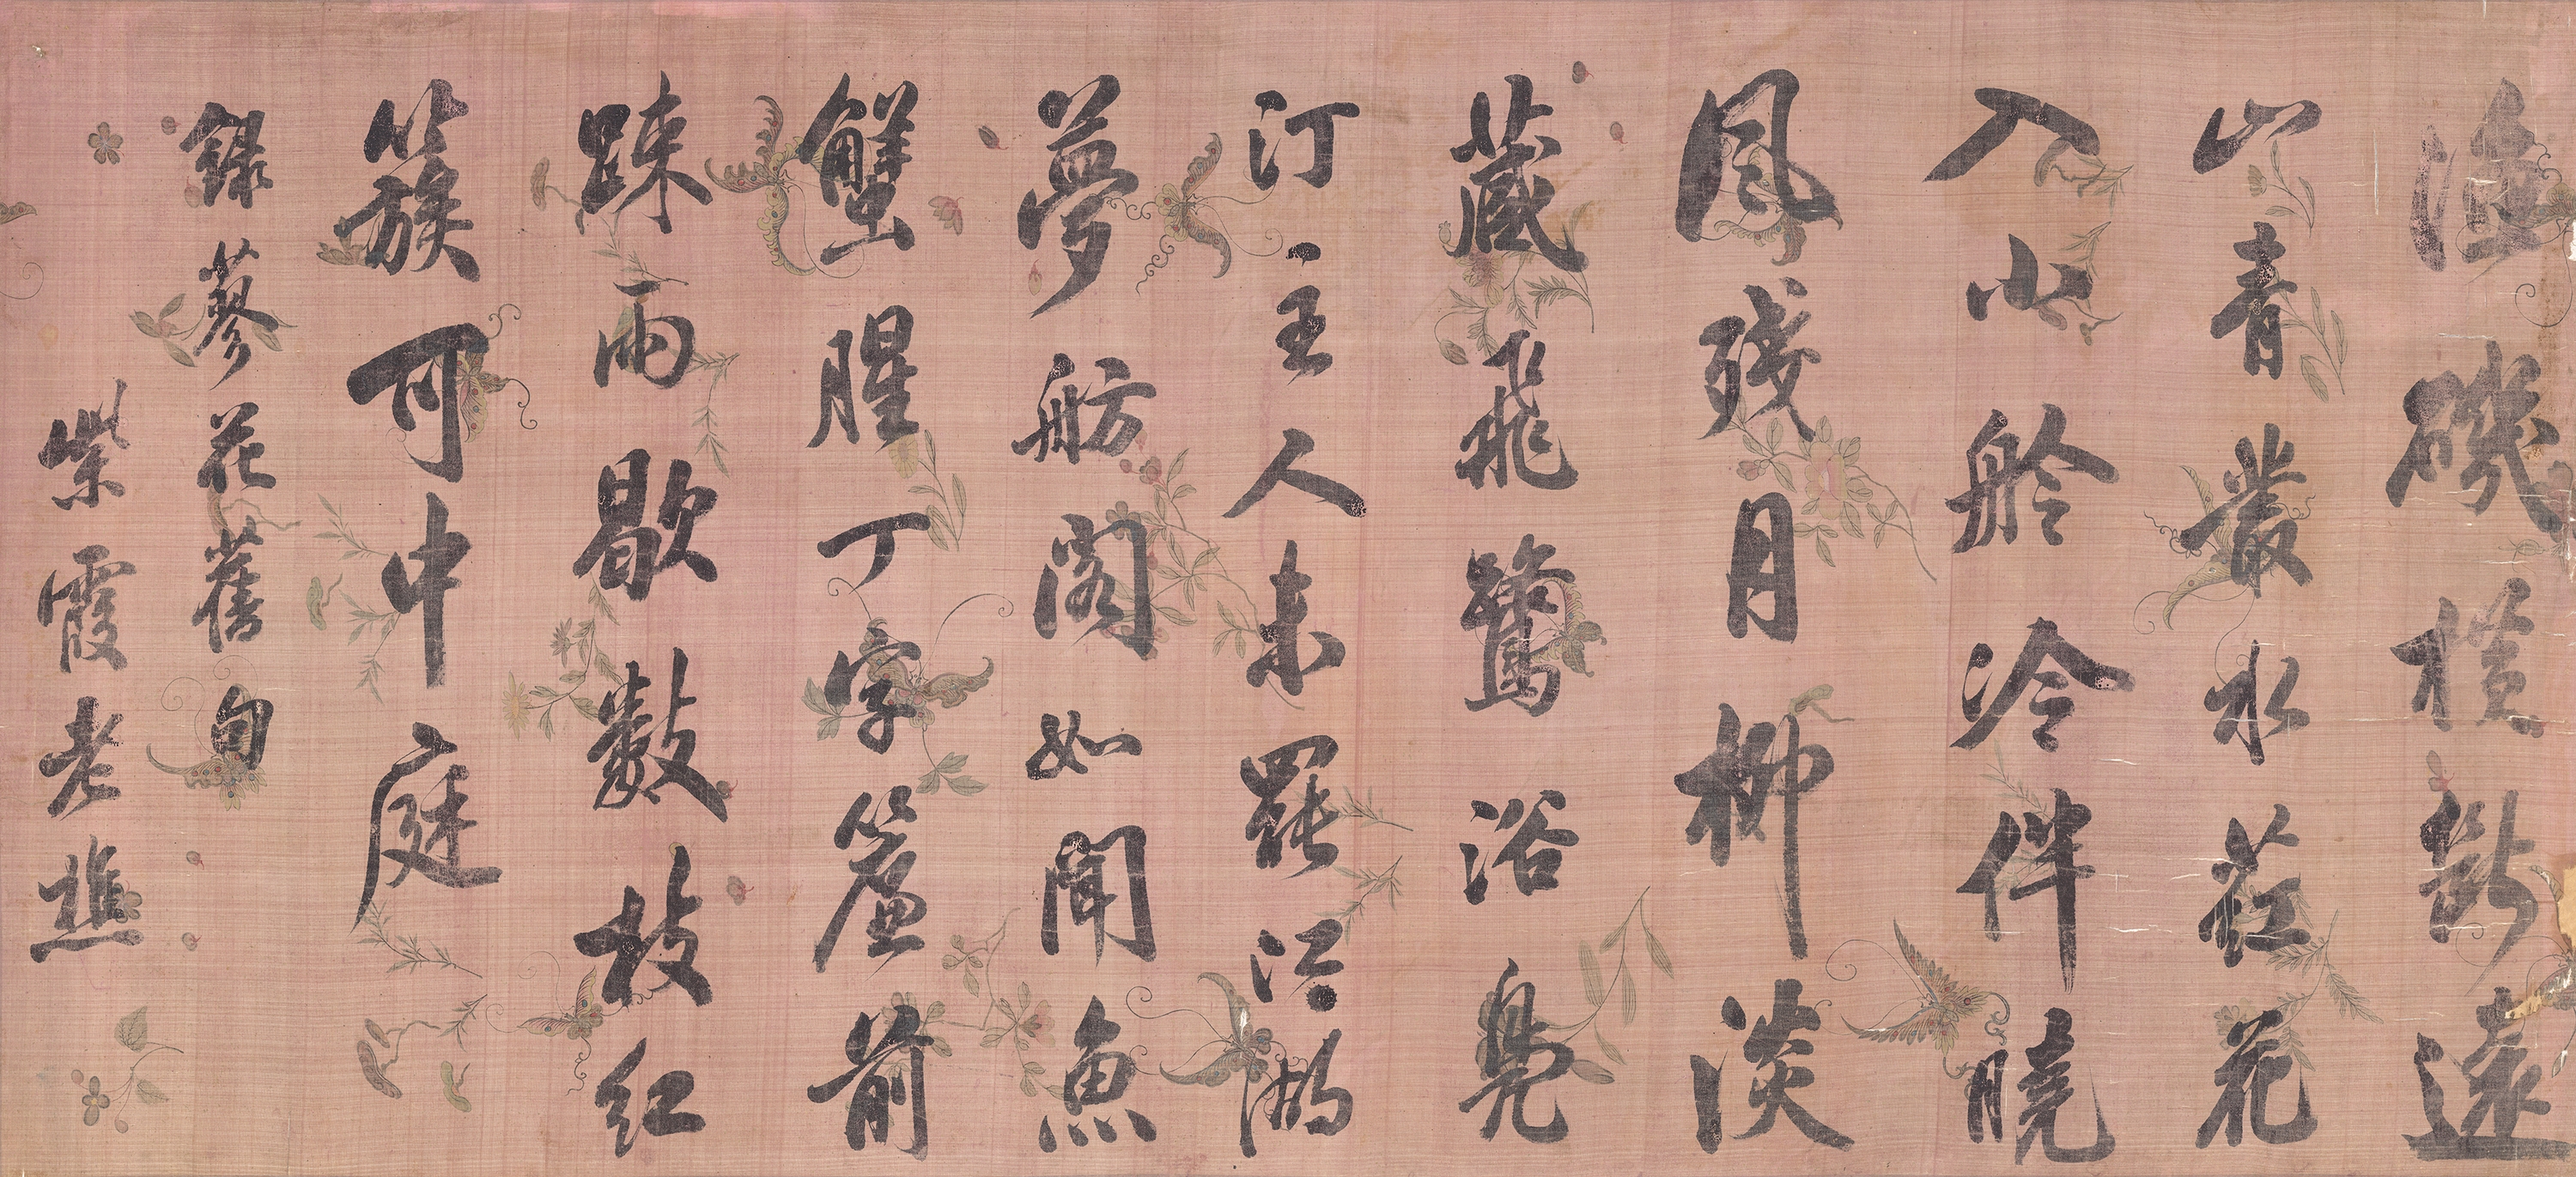 漁磯橫斷遠
山青叢水葒花
入小舲冷伴曉
風殘月柳淡
藏飛鷺浴鳧
汀主人未罷江湖
夢舫閣如聞魚
蟹腥丁字簾前
踈雨歇數枝紅
簇可中庭
錄蓼花舊句
紫霞老樵